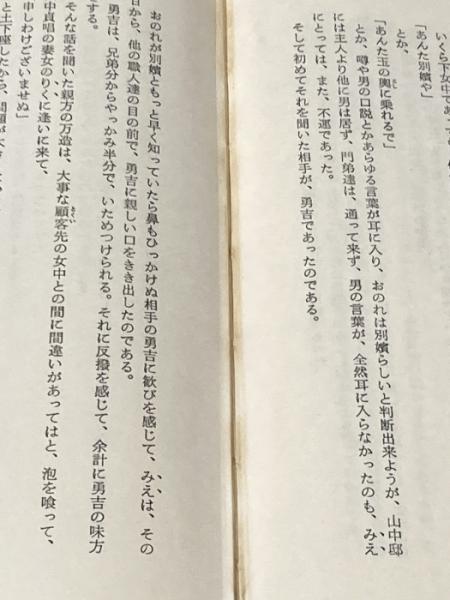 いくら下女中であって
「あんた別嬪や」
とか、
「あんた玉の輿に乗れるで」
とか、噂や男の口説とかあらゆる言葉が耳に入り、おのれは別嬪らしいと判断出来ようが、山中邸
には主人より他に男は居ず、門弟達は、通って来ず、男の言葉が、全然耳に入らなかったのも、みえ
にとっては、また、不運であった。
そして初めてそれを聞いた相手が、勇吉であったのである。
おのれが別嬪ともっと早く知っていたら鼻もひっかけぬ相手の勇吉に歓びを感じて、みえは、その
日から、他の職人達の目の前で、勇吉に親しい口をきき出したのである。
勇吉は、兄弟分からやっかみ半分で、いためつけられる。それに反撥を感じて、余計に勇吉の味方
する。
そんな話を聞いた親方の万造は、大事な顧客先の女中との間に間違いがあってはと、泡を喰って、
中貞唱の妻女のりくに逢いに来て、
申しわけございませぬ」
と土下座したから、